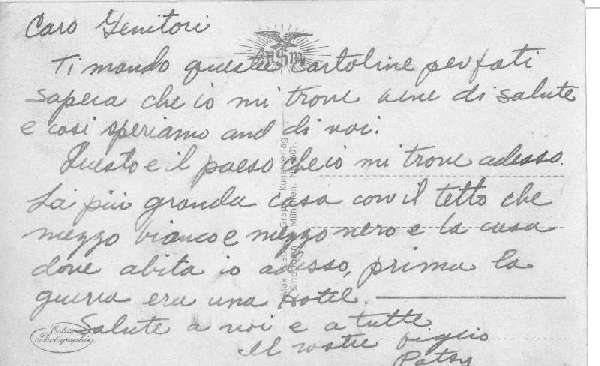 Caro Genitori
Ti mando queste cartoline per fati
sapera che io mi trove bene di salute
e cosi speriamo and di voi.
Questo e il paeso che io mi trove adesso.
La più granda casa con il tetto che
mezzo bianco e mezzo nero e la casa
dove abita io adesso, prima la
guerra era una Hotel.
Salute a voi e a tutte
Il vostre figlio
Patsy